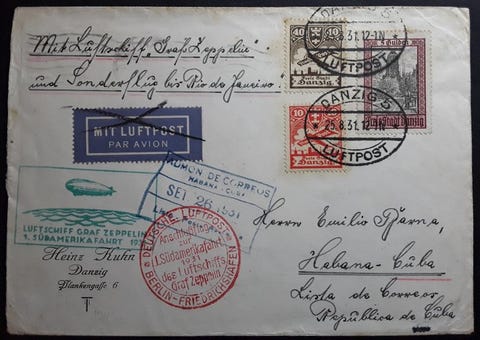 Mit Luftschiff „Graf Zeppelin"
und Sonderflug bis Rio de Janeiro!
MIT LUFTPOST
PAR AVION
10 10
Freie Stadt
Danzig
10 10
Freie Stadt
Danzig
5 Gulden
Freie Stadt Danzig
DANZIG 5
25.8.31.12-1N
LUFTPOST
DANZIG 5
25.8.31.12-1N
LUFTPOST
LUFTSCHIFF GRAF ZEPPELIN
1. SÜDAMERIKAFAHRT 1931
DE CORREOS
HABANA, CUBA
SET 26 1931
DEUTSCHE LUFTPOST
Anschlußflug
zur
1. Südamerikafahrt
1931
des Luftschiffs
Graf Zeppelin
BERLIN-FRIEDRICHSHAFEN
Heinz Kuhn
Danzig
Plankengasse 6
Herrn Emilio
Habana-Cuba
Lista de Correos
República de Cuba